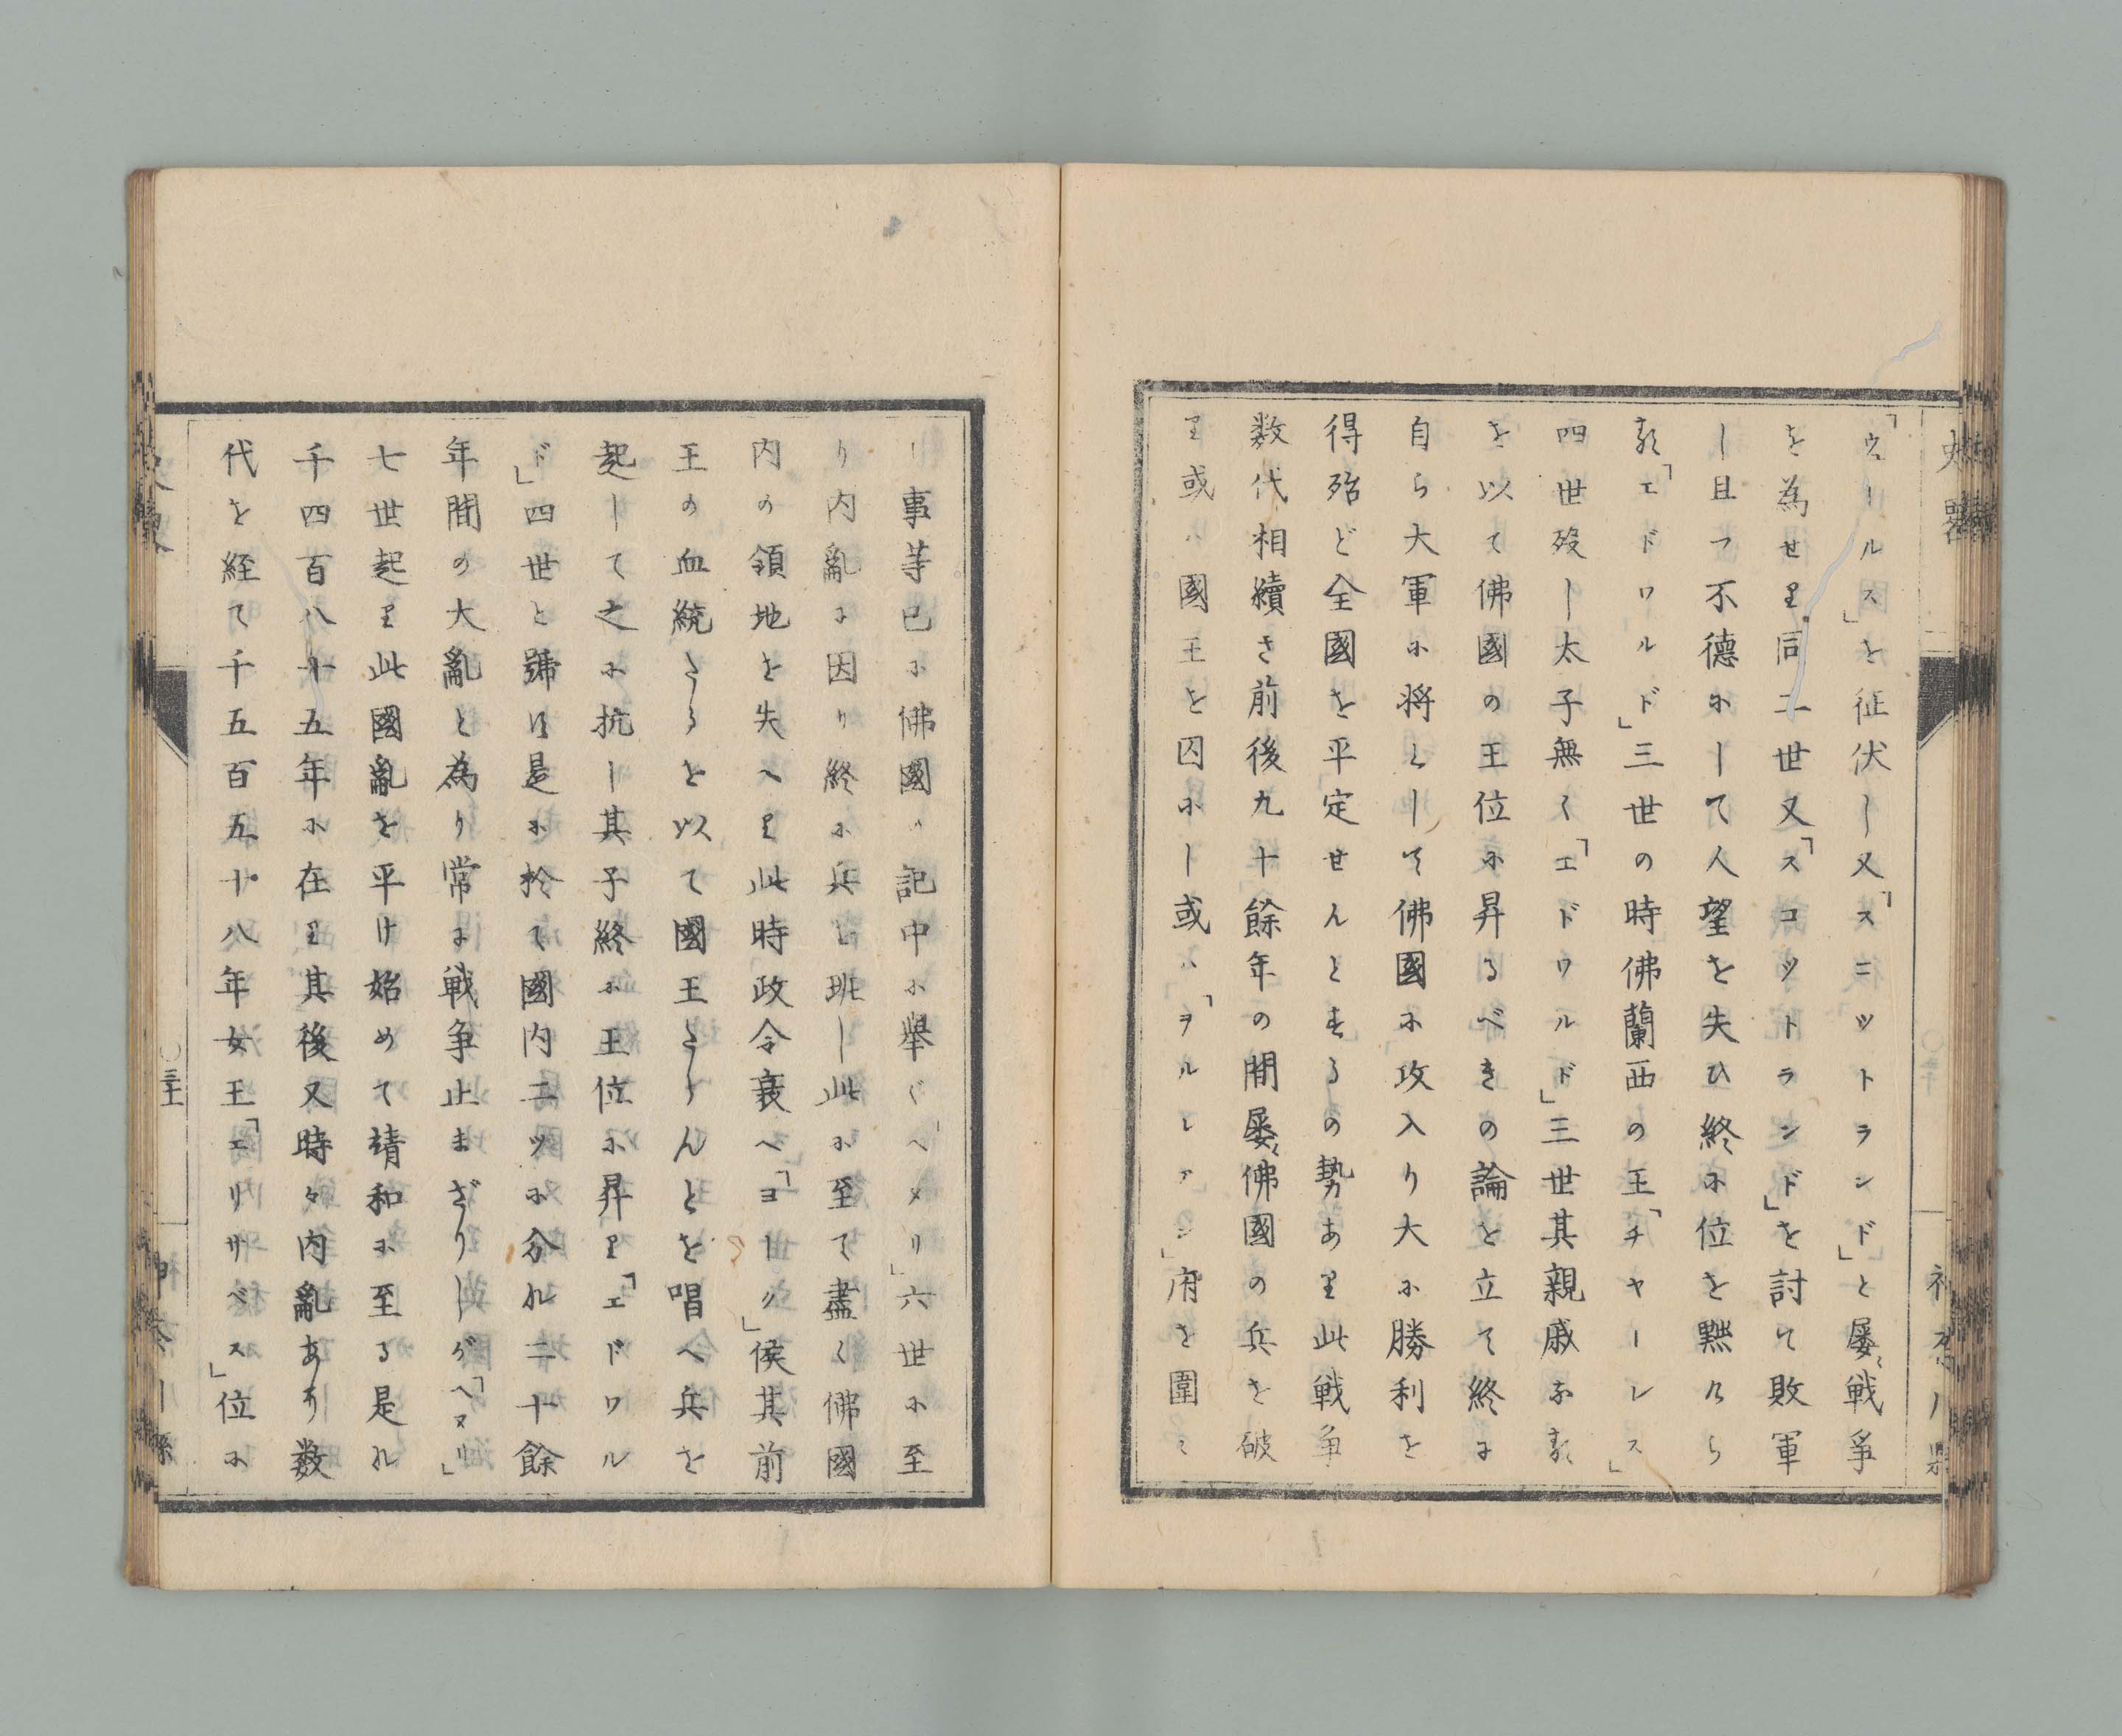 史畧
「ウェールス」を征伏し又「スコツトランド」と屡〻戦爭
を為せり同二世又「スコツトランド」を討て敗軍
し且つ不徳にして人望を失ひ終に位を黙けら
る「エドワルド」三世の時佛蘭西の王「チャーレス」
四世歿し太子無く「エドワルド」三世其親戚なる
を以て佛國の王位に昇るべきの論を立て終に
自ら大軍に将として佛國に攻入り大に勝利を
得殆ど全國を平定せんとするの勢あり此戦争
数代相續き前後九十餘年の間屡〻佛國の兵を破
り或ハ國王を囚にし或ハ「ヲルレアン」府を圍ミ
神奈川縣
し事等已に佛國ノ記中に舉ぐ「ヘヌリ」六世に至
り内亂に因り終に兵を班し此に至て盡く佛國
内の領地を失へり此時政令衰へ「ヨーク」侯其前
王の血統たるを以て國王たらんとを唱へ兵を
起して之に抗し其子終に王位に昇り「エドワル
ド」四世と號は是に於て國内二ツに分れ二十餘
年間の大亂と為り常に戦争止まざりしが「ヘヌリ」
七世起り此國亂を平け始めて靖和に至る是れ
千四百八十五年に在り其後又時々内亂あり数
代を経て千五百五十八年女王「エリサベス」位に